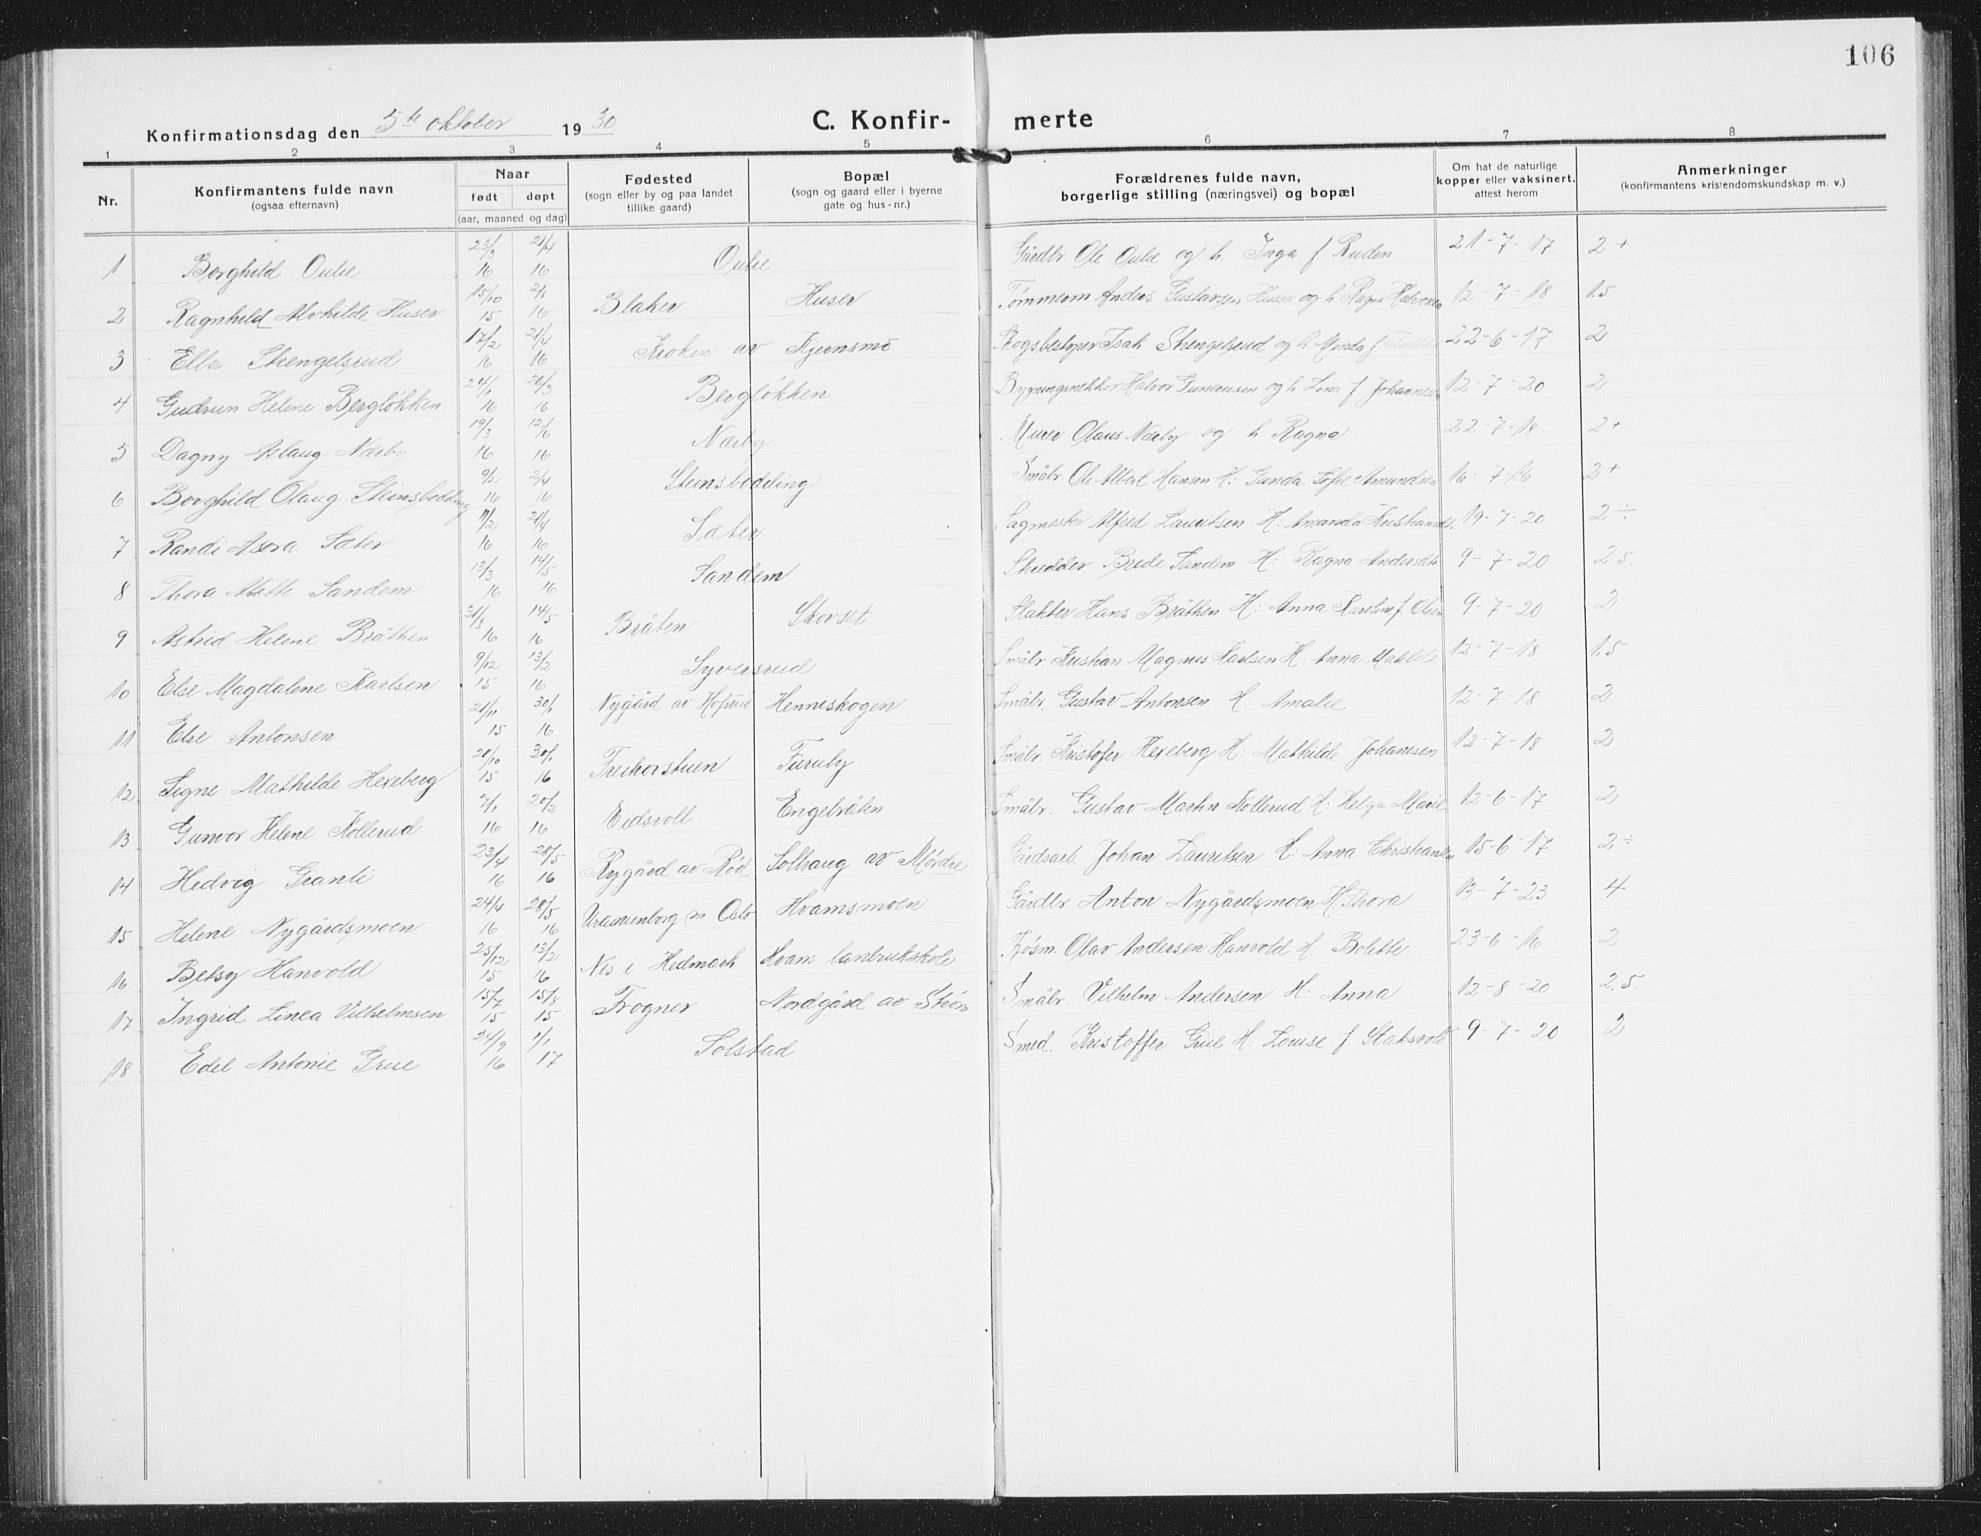 106
C. Konfir- merte
Konfirmationsdag den 5te oktober 1930
1 2 3 4 5 6 7 8
Nr.
Konfirmantens fulde navn
(ogsaa efternavn)
Naar
født døpt
(aar, maaned og dag)
Fødested
(sogn eller by og paa landet
tillike gaard)
Bopæl
(sogn og gaard eller i byerne
gate og hus-nr.)
Forældrenes fulde navn,
borgerlige stilling (næringsvei) og bopæl
Om hat de naturlige
kopper eller vaksinert,
attest herom
Anmerkninger
(konfirmantens kristendomskundskap m. v.)
1 Borghild Oulie 23/3 16 21/4 16 Oulie Gårdbr. Ole Oulie og h. Inga f Ruden 21-7-17 2+
2 Ragnhild Alvhilde Huser 15/10 15 2/1 16 Blaker Huser Tømmerm Anders Gustavsen Huser og h. Ragna Halvorsen 12-7-18 1.5
3 Ella Stengelsrud 17/2 16 21/4 16 Kroken av Kjernsmo Skogsbestyrer Isak Stengelsrud og h. 22-6-17 2
4 Gudrun Helene Bergløkken 24/1 16 26/3 16 Bergløkken Bygningsnekker Halvor Gunerusen og h. Lina f. Johannesen 12-7-20 2
5 Dagny Aslaug Nærby 19/3 16 12/6 16 Nærby Murer Olaus Nærby og h. Ragna 22-7-18 2+
6 Borghild Olaug Steinsbødding 9/2 16 2/4 16 Steinsbødding Småbr. Ole Albert Hansen H: Gunda Sofie Amundsen 16-7-16 2+
7 Randi Asora Sæter 11/2 16 21/4 16 Sæter Sagmester Alfred Lauritsen H: Amanda 19-7-20 2÷
8 Thora Mette Sandem 13/3 16 14/5 16 Sandem Skredder Brede Sandem H: Ragna 9-7-20 2.5.
9 Astrid Helene Bråthen 31/3 16 14/5 16 Bråten Skorset Slakter Hans Bråthen H: Anna Karoline f Olsen 9-7-20 2
10 Else Magdalene Karlsen 9/12 15 13/2 16 Syversrud Småbr. Kristian Magnus Karlsen H: Anna Matilde 12-7-18 1.5
11 Else Antonsen 21/11 15 30/1 16 Nygård av Hofsrud Henneskogen Småbr. Gustav Antonsen H: Amalie 12-7-18 2
12 Signe Mathilde Hexeberg 20/10 15 30/1 16 Furuby Småbr. Kristofer Hexeberg H: Mathilde Johansen 12-7-18 2
13 Gunvor Helene Kollerud 2/1 16 20/2 16 Eidsvoll Engebråten Småbr. Gustav Martin Kollerud H: Helga Marie 12-6-17 2
14 Hedvig Granli 23/4 16 28/5 16 Rygård av Rød Solhaug av Mørdre Gårdsarb Johan Lauritsen H: Anna Christiansen 15-6-17 2÷
15 Helene Nygårdsmoen 24/4 16 28/5 16 Uranienborg m Oslo Hvamsmoen Gårdbr. Anton Nygårdsmoen H. Thora 13-7-23 4
16 Betsy Hanvold 25/12 15 13/2 16 Nes i Hedmark Hvam lantbrukskole Fjøsm. Olav Andersen Hanvold H. Bolette 23-6-16 2
17 Ingrid Linea Vilhelmsen 15/7 15 15/8 15 Frogner Nordgård av Skøm Småbr. Vilhelm Andersen H: Anna 12-8-20 2.5.
18 Edel Antonie Grue 24/9 16 1/1 17 Solstad Smed. Kristoffer Grue H: Louise f Staksvold 9-7-20 2